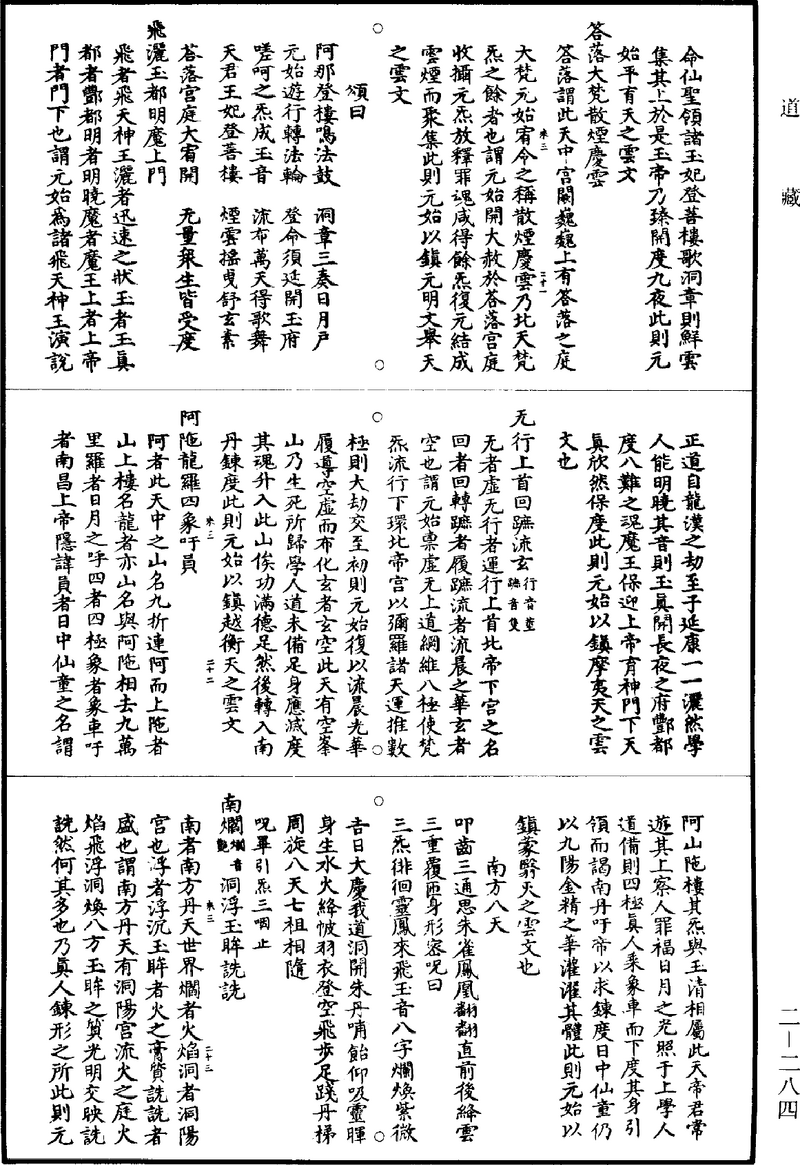 道藏
命仙聖領諸玉妃登菩樓歌洞章則鮮雲
集其上於是玉帝乃臻開度九夜此則元
始平育天之雲文
答落大梵散煙慶雲
答落謂此天中宮闕巍巍上有答落之庭
大梵元始宥令之稱散煙慶雲乃北天梵
炁之餘者也謂元始開大赦於答落宮庭
收攝元炁放釋罪魂咸得餘炁復元結成
雲煙而聚集此則元始以鎮元明文舉天
之雲文
頌曰
阿那登樓鳴法鼓 洞章三奏日月戶
元始遊行轉法輪 登命須延開玉府
嗟呵之炁成玉音 流布萬天得歌舞
天君王妃登菩樓 煙雲搖曳舒玄素
荅落宮庭大宥開 无量衆生皆受度
飛灑玉都明魔上門
飛者飛天神王灑者迅速之狀玉者玉真
都者酆都明者明曉魔者魔王上者上帝
門者門下也謂元始爲諸飛天神王演說
正道自龍漢之劫至于延康一一灑然學
人能明曉其音則玉真開長夜之府酆都
度八難之魂魔王保迎上帝育神門下天
真欣然保度此則元始以鎮摩夷天之雲
文也
无行上首回蹠流玄行音堂蹠音隻
无者虛无行者運行上首北帝下宮之名
回者回轉蹠者履蹠流者流晨之華玄者
空也謂元始稟虛无上道綱維八極使梵
炁流行下環北帝宮以彌羅諸天運推數
極則大劫交至初則元始復以流晨光華
履導空虛而布化玄者玄空此天有空峯
山乃生死所歸學人道未備足身應滅度
其魂升入此山俟功滿德足然後轉入南
丹鍊度此則元始以鎮越衡天之雲文
阿陁龍羅四象吁員
阿者此天中之山名九折連阿而上陁者
山上樓名龍者亦山名與阿陁相去九萬
里羅者日月之呼四者四極象者象車吁
者南昌上帝隱諱員者日中仙童之名謂
阿山陁樓其炁與玉清相屬此天帝君常
遊其上察人罪福日月之光照于上學人
道備則四極真人乘象車而下度其身引
領而謁南丹吁帝以求鍊度日中仙童仍
以九陽金精之華灌濯其體此則元始以
鎮蒙翳天之雲文也
南方八天
叩齒三通思朱雀鳳凰翻翻直前後絳雲
三重覆匝身形密呪曰
三炁徘徊靈鳳來飛玉音八字爛煥紫微
吉日大慶我道洞開朱丹哺飴仰吸靈暉
身生水火絳帔羽衣登空飛步足踐丹梯
周旋八天七祖相隨
呪畢引炁三咽止
南爛洞浮玉眸詵詵
南者南方丹天世界爛者火焰洞者洞陽
宮也浮者浮沉玉眸者火之膏質詵詵者
盛也謂南方丹天有洞陽宮流火之庭火
焰飛浮洞煥八方玉眸之質光明交映詵
詵然何其多也乃真人鍊形之所此則元
二—二八四